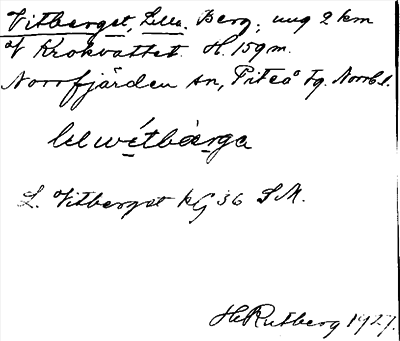 Vitberget, Lilla. Berg, ung 2 km
V Krokvattet. H. 159 m.
Norrfjärden sn, Piteå tg. Norrb. l.
lilwítbàrga
L. Vitberget kG 36 S M.
H. Rutberg 1927.